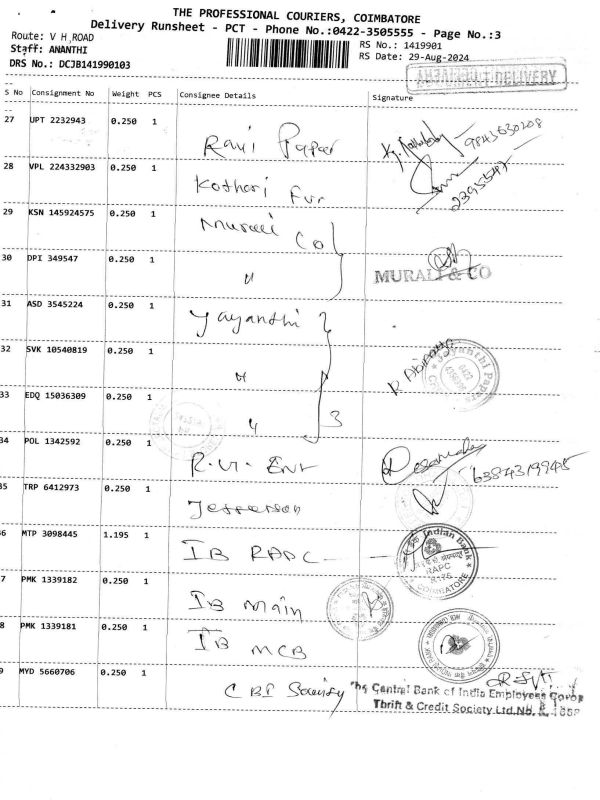 THE PROFESSIONAL COURIERS, COIMBATORE
Delivery Runsheet - PCT - Phone No.:0422-3505555 - Page No.:3
Route: V H ROAD
RS No.: 1419901
Staff: ANANTHI
RS Date: 29-Aug-2024
DRS No.: DCJB141990103
S No Consignment No Weight PCS Consignee Details Signature
27 UPT 2232943 0.250 1 Ravi Paper
28 VPL 224332903 0.250 1 Kothari Fur
29 KSN 145924575 0.250 1 Murali Co
30 DPI 349547 0.250 1 "
MURALI & CO
31 ASD 3545224 0.250 1 Jayanthi
32 SVK 10540819 0.250 1 "
Jayanthi Papers
33 EDQ 15036309 0.250 1 " 3
34 POL 1342592 0.250 1 R.V. Ent
35 TRP 6412973 0.250 1 Jefferson
6 MTP 3098445 1.195 1 IB RAPC
Indian Bank
RAPC
COIMBATORE
7 PMK 1339182 0.250 1 IB Main
8 PMK 1339181 0.250 1 IB MCB
9 MYD 5660706 0.250 1 CBI Society
The Central Bank of India Employees Coop
Thrift & Credit Society Ltd. No.